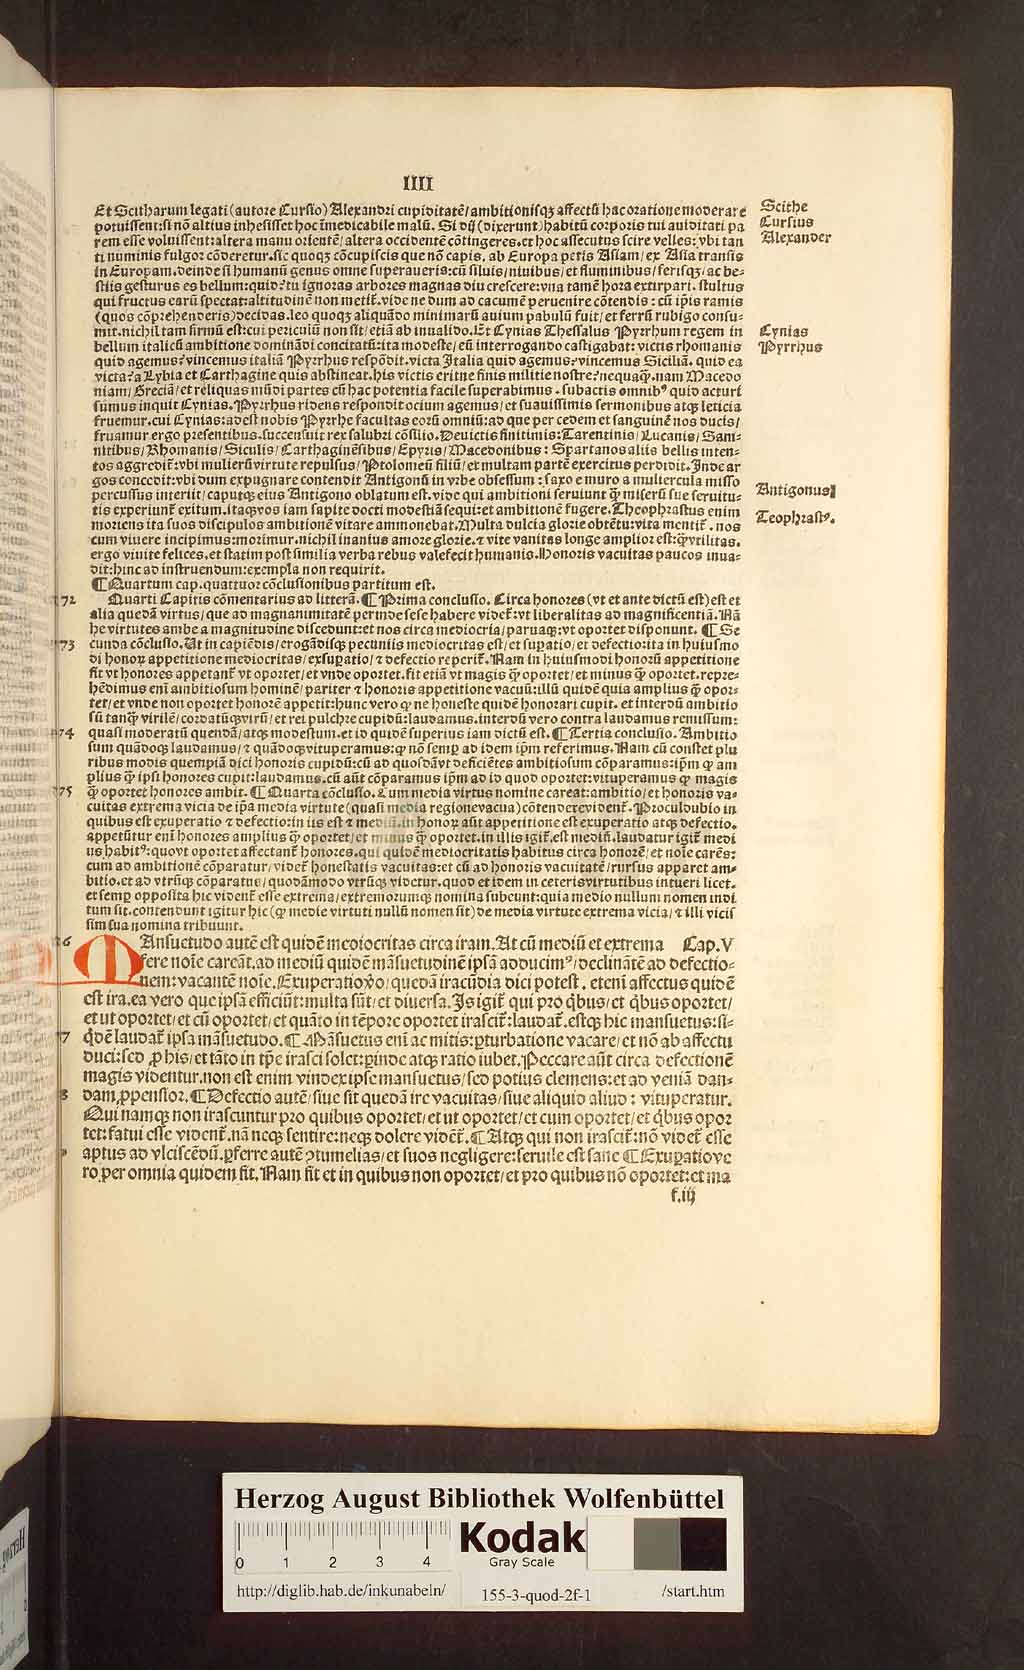 IIII
Et Scitharum legati (autore Cursio) Alexandri cupiditatē/ambitionisqȝ affectū hac oratione moderare
potuissent:si nō altius inhesisset hoc īmedicabile malū. Si dij (dixerunt) habitū corporis tui auiditati pa
rem esse voluissent:altera manu orientē/altera occidentē cōtingeres.et hoc assecutus scire velles:vbi tan
ti numinis fulgor cōderetur.sic quoqȝ cōcupiscis que nō capis. ab Europa petis Asiam/ex Asia transis
in Europam.deinde si humanū genus omne superaueris:cū siluis/niuibus/et fluminibus/ferisqȝ/ac be-
stiis gesturus es bellum:quid?tu ignoras arbores magnas diu crescere:vna tamē hora extirpari. stultus
qui fructus earū spectat:altitudinē non metit̄.vide ne dum ad cacumē peruenire cōtendis : cū ip̄is ramis
(quos cōprehenderis)decidas.leo quoqȝ aliquādo minimarū auium pabulū fuit/et ferrū rubigo consu-
mit.nichil tam firmū est:cui periculū non sit/etiā ab inualido.Et Cynias Thessalus Pyrrhum regem in
bellum italicū ambitione dominādi concitatū:ita modeste/cū interrogando castigabat:victis rhomanis
quid agemus?vincemus italiā Pyrrhus respōdit.victa Italia quid agemus?vincemus Siciliā. quid ea
victa?a Lybia et Carthagine quis abstineat.his victis eritne finis militie nostre?nequaq̄.nam Macedo
niam/Greciā/et reliquas mūdi partes cū hac potentia facile superabimus . subactis omnibꝰ quid acturi
sumus inquit Cynias.Pyrrhus ridens respondit ocium agemus/et suauissimis sermonibus atqȝ leticia
fruemur.cui Cynias:adest nobis Pyrrhe facultas eorū omniū:ad que per cedem et sanguinē nos ducis/
fruamur ergo presentibus.succensuit rex salubri cōsilio.Deuictis finitimis:Tarentinis/Lucanis/Sam-
nitibus/Rhomanis/Siculis/Carthaginēsibus/Epyris/Macedonibus : Spartanos aliis bellis inten-
tos aggredit̄:vbi mulierū virtute repulsus/Ptolomeū filiū/et multam partē exercitus perdidit.Inde ar
gos concedit:vbi dum expugnare contendit Antigonū in vrbe obsessum : saxo e muro a muliercula misso
percussus interiit/caputqȝ eius Antigono oblatum est.vide qui ambitioni seruiunt q̄ miserū sue seruitu-
tis experiunt̄ exitum.itaqȝ vos iam sapite docti modestiā sequi:et ambitionē fugere.Theophrastus enim
moriens ita suos discipulos ambitionē vitare ammonebat.Multa dulcia glorie obtētu:vita mentit̄ . nos
cum viuere incipimus:morimur.nichil inanius amore glorie.⁊ vite vanitas longe amplior est:q̄ vtilitas.
ergo viuite felices.et statim post similia verba rebus valefecit humanis.Honoris vacuitas paucos inua-
dit:hinc ad instruendum:exempla non requirit.
¶Quartum cap.quattuor cōclusionibus partitum est.
72 Quarti Capitis cōmentarius ad litterā.¶Prima conclusio. Circa honores (vt et ante dictū est) est et
alia quedā virtus/que ad magnanimitatē perinde sese habere videt̄:vt liberalitas ad magnificentiā.Nā
he virtutes ambe a magnitudine discedunt:et nos circa mediocria/paruaqȝ:vt oportet disponunt. ¶Se
73 cunda cōclusio.Ut in capiēdis/erogādisqȝ pecuniis mediocritas est/et suꝑatio/et defectio:ita in huiusmo
di honoꝝ appetitione mediocritas/exsuꝑatio/⁊ defectio reperit̄.Nam in huiusmodi honorū appetitione
fit vt honores appetant̄ vt oportet/et vnde oportet.fit etiā vt magis q̄ oportet/et minus q̄ oportet.repre-
hēdimus eni ambitiosum hominē/pariter ⁊ honoris appetitione vacuū:illū quidē quia amplius q̄ opor-
tet/et vnde non oportet honorē appetit:hunc vero q̄ ne honeste quidē honorari cupit. et interdū ambitio
sū tanq̄ virilē/cordatūqȝ virū/et rei pulchre cupidū:laudamus.interdū vero contra laudamus remissum:
74 quasi moderatū quendā/atqȝ modestum.et id quidē superius iam dictū est.¶Tertia conclusio. Ambitio
sum quādoqȝ laudamus/⁊ quādoqȝ vituperamus:q̄ nō semꝑ ad idem ip̄m referimus.Nam cū constet plu
ribus modis quempiā dici honoris cupidū:cū ad quosdā vt deficiētes ambitiosum cōparamus:ip̄m q̄ am
plius q̄ ipsi honores cupit:laudamus.cū aūt cōparamus ip̄m ad id quod oportet:vituperamus q̄ magis
75 q̄ oportet honores ambit.¶Quarta cōclusio.Cum media virtus nomine careat:ambitio/et honoris va-
cuitas extrema vicia de ip̄a media virtute (quasi media regione vacua) cōtendere vident̄.Proculdubio in
quibus est exuperatio ⁊ defectio:in iis est ⁊ mediū.in honoꝝ aūt appetitione est exuperatio atqȝ defectio.
appetūtur eni honores amplius q̄ oportet/et minus q̄ oportet.in illis igit̄ est mediū.laudatur igit̄ medi
us habitꝰ:quo vt oportet affectant̄ honores.qui quidē mediocritatis habitus circa honorē/et noīe carēs:
cum ad ambitionē cōparatur/videt̄ honestatis vacuitas:et cū ad honoris vacuitatē/rursus apparet am-
bitio.et ad vtrūqȝ cōparatus/quodāmodo vtrūqȝ videtur.quod et idem in ceteris virtutibus intueri licet.
et semꝑ opposita hic vident̄ esse extrema/extremorumqȝ nomina subeunt:quia medio nullum nomen indi
tum sit.contendunt igitur hic (q̄ medie virtuti nullū nomen sit) de media virtute extrema vicia/⁊ illi vicis
sim sua nomina tribuunt.
Scithe
Cursius
Alexander
Cynias
Pyrrhus
Antigonus
Teophrastꝰ.
76 MAnsuetudo autē est quidē mediocritas circa iram.At cū mediū et extrema Cap.V
fere noīe careāt.ad mediū quidē māsuetudinē ipsā adducimꝰ/declinātē ad defectio-
nem:vacantē noīe.Exuperatio v̊o/quedā iracūdia dici potest . etenī affectus quidē
est ira.ea vero que ipsā efficiūt:multa sūt/et diuersa.Is igit̄ qui pro q̇bus/et q̇bus oportet/
et ut oportet/et cū oportet/et quāto in tēpore oportet irascit̄:laudat̄.estqȝ hic mansuetus:si-
77 q̇dē laudat̄ ipsa māsuetudo.¶Māsuetus eni ac mitis:ꝑturbatione vacare/et nō ab affectu
duci:sed ꝓ his/et tāto in tp̄e irasci solet:ꝑinde atqȝ ratio iubet.Peccare aūt circa defectionē
magis videntur.non est enim vindex ipse mansuetus/sed potius clemens:et ad veniā dan-
8 dam ꝓpensior.¶Defectio autē/siue sit quedā ire vacuitas/siue aliquid aliud : vituperatur.
Qui namqȝ non irascuntur pro quibus oportet/et ut oportet/et cum oportet/et q̇bus opor
tet:fatui esse vident̄.nā neqȝ sentire:neqȝ dolere videt̄.¶Atqȝ qui non irascit̄:nō videt̄ esse
9 aptus ad vlciscēdū.ꝑferre autē ꝯtumelias/et suos negligere:seruile est sane ¶Exuꝑatio ve
ro ꝑ omnia quidem fit.Nam fit et in quibus non oportet/et pro quibus nō oportet:et ma
f.iij
Herzog August Bibliothek Wolfenbüttel
0 1 2 3 4
Kodak
Gray Scale
http://diglib.hab.de/inkunabeln/ 155-3-quod-2f-1 /start.htm